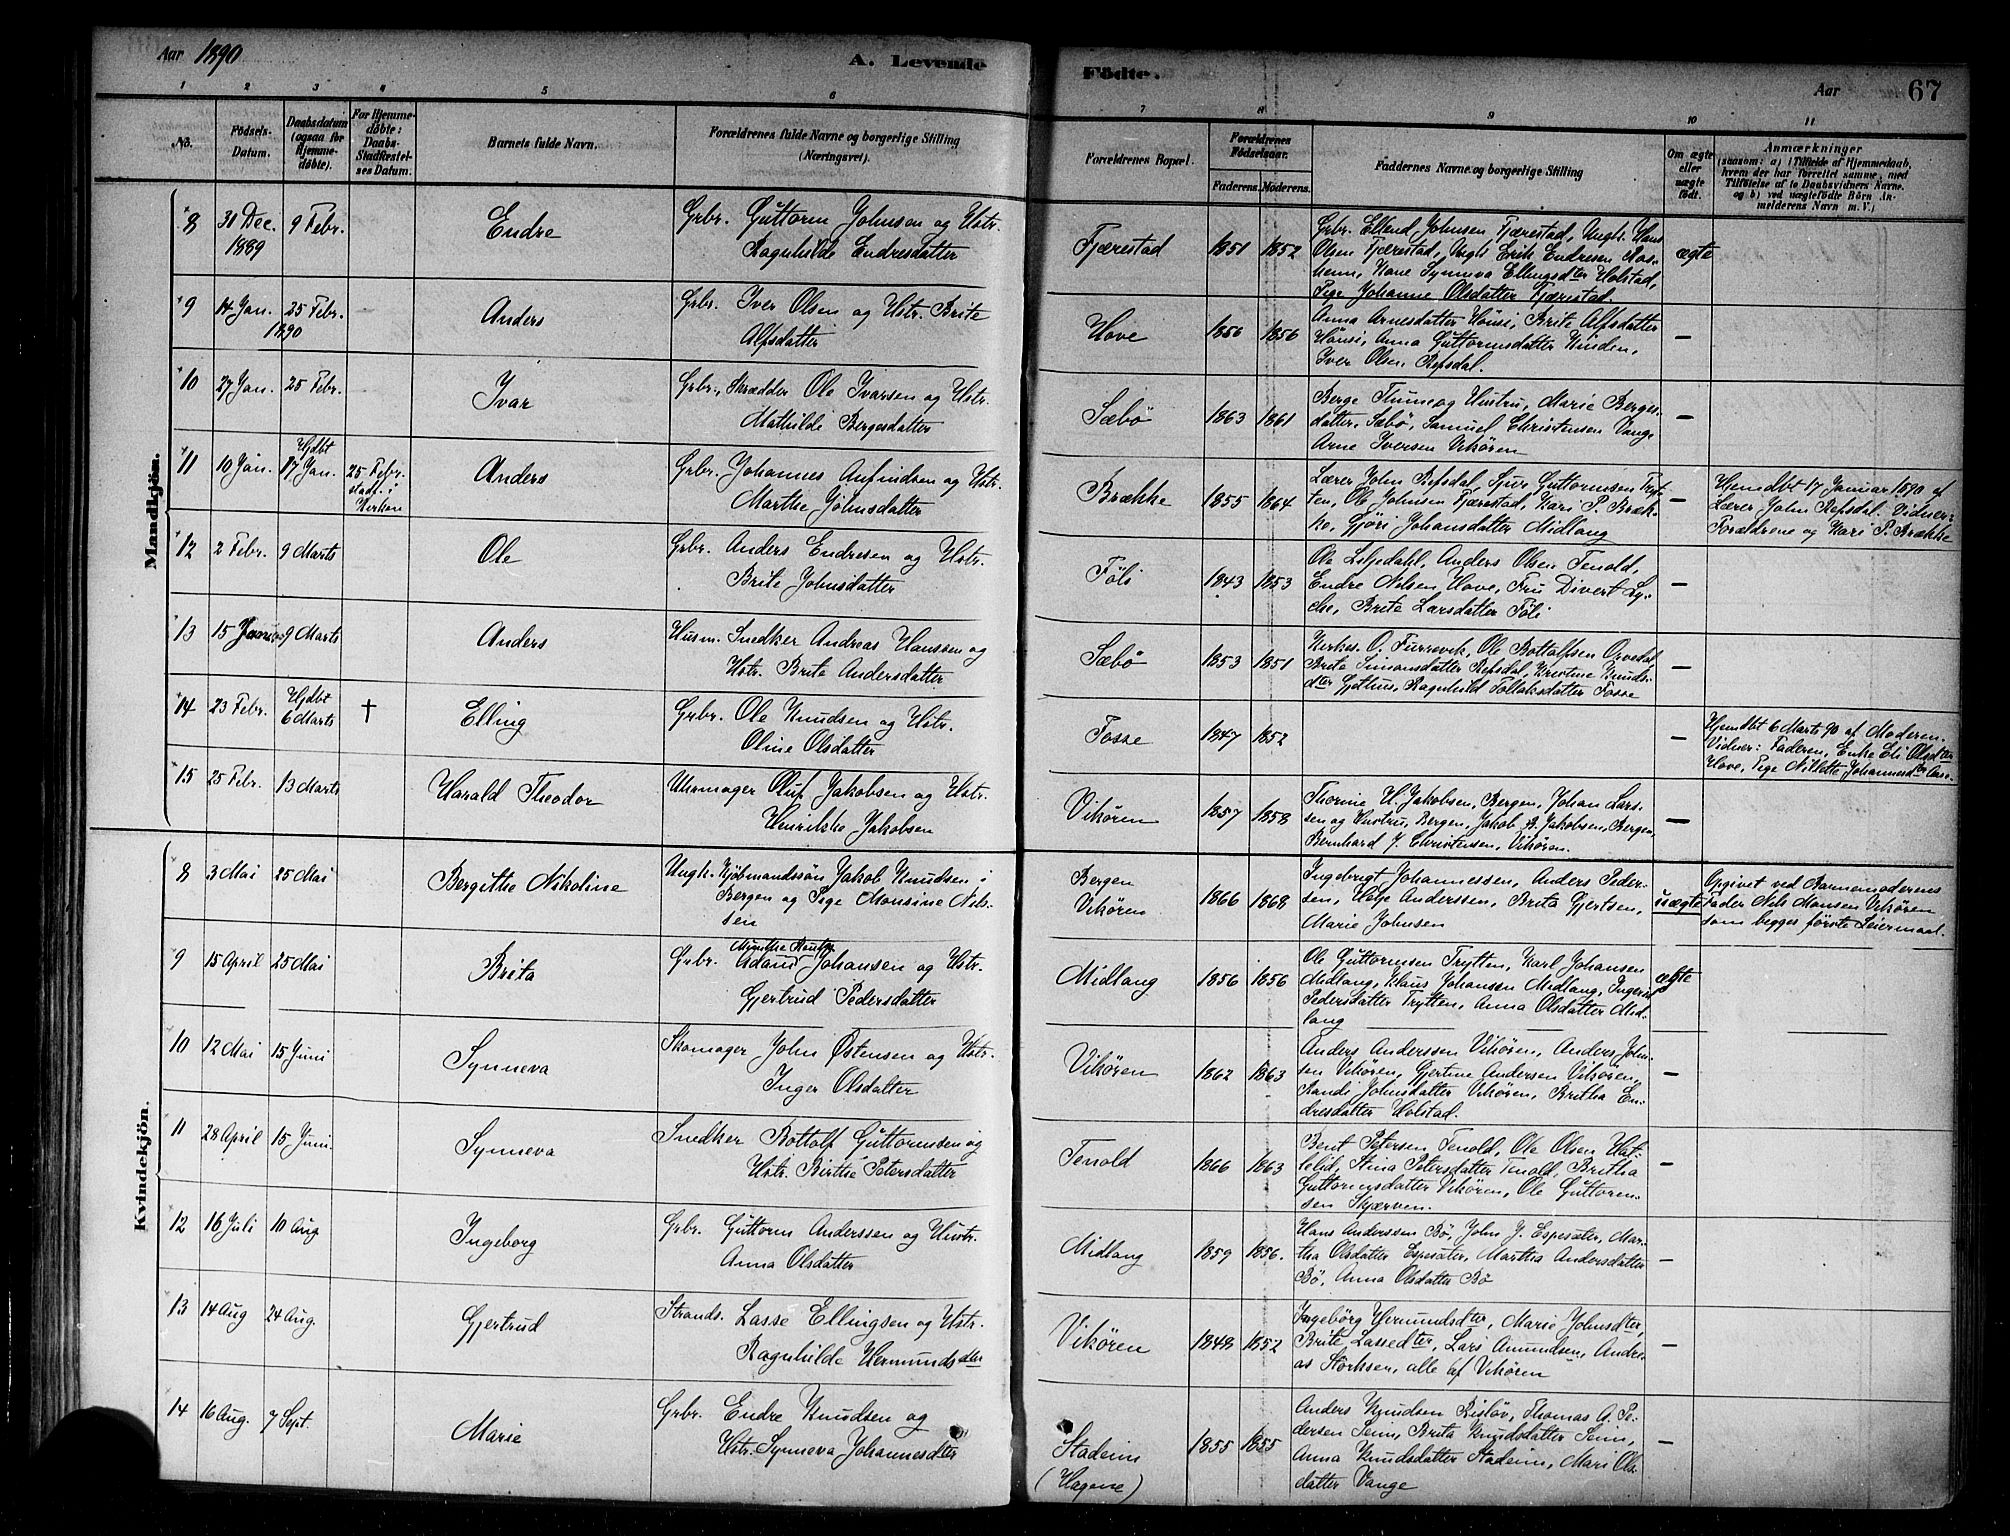 Aar 1890
A. Levende Födte.
Aar 67
1 2 3 4 5 6 7 8 9 10 11
No.
Födsels-Datum.
Daabsdatum (ogsaa for Hjemmedøbte).
For Hjemmedøbte: Daabs-Stadfæstelses Datum.
Barnets fulde Navn.
Forældrenes fulde Navne og borgerlige Stilling (Næringsvei).
Forældrenes Bopæl.
Forældrenes Födselsaar.
Faderens. Moderens.
Faddernes Navne og borgerlige Stilling
Om ægte eller uægte født.
Anmærkninger
(saasom: a) i Tilfælde af Hjemmedaab, hvem der har forrettet samme, med Tilføielse af to Daabsvidners Navne, og b) ved uægtefödte Börn Anmelderens Navn m. V.)
Mandkjön.
8 31 Dec. 1889 9 Febr. Endre
Grbr. Guttorm Johnsen og Hstr.
Ragnhilde Endresdatter
Fjærestad 1851 1852
Grbr. Ellend Johnsen Fjærestad, Ungk. Hans
Olsen Fjærestad, Ungk. Erik Endresen
Kone Synneva Ellingsdter Holstad,
Pige Johanne Olsdatter Fjærestad.
ægte
9 14 Jan. 1890 25 Febr. Anders
Grbr. Iver Olsen og Hstr. Brite
Alfsdatter
Hove 1856 1856
Anna Arnesdatter Hönsi, Brite Alfsdatter
Hönsi, Anna Guttormsdatter
Iver Olsen Refsdal.
—
10 27 Jan. 25 Febr. Ivar
Grbr., Skrædder Ole Ivarsen og Hstr.
Mathilde Bergesdatter
Sæbö 1863 1861
Berge Tune og Hustru, Marie Berges-
datter, Sæbö, Samuel Christensen Vange
Arne Iversen Vikören
—
11 10 Jan. Hjdbt 17 Jan. 25 Febr. stadf. i Kirken Anders
Grbr. Johannes Anfindsen og Hstr.
Marthe Johnsdatter
Brække 1855 1864
Lærer John Refsdal, Sjur Guttormsen Tryt-
ten, Ole Johnsen Fjærestad, Kari P. Bræk-
ke, Gjöri Johansdatter Midlang
—
Hjemdbt 17 Januar 1890 af
Lærer John Refsdal. Vidner:
Forældrene og Kari P. Brække
12 2 Febr. 9 Marts Ole
Grbr. Anders Endresen og Hstr.
Brite Johnsdatter
Föli 1843 1853
Ole Liljedahl, Anders Olsen Tenold,
Endre Nilsen Hove, Fru Divert Ly-
che, Brite Larsdatter Föli
—
13 15 9 Marts Anders
Husm. Snedker Andreas Hanssen og
Hstr. Brite Andersdatter
Sæbö 1853 1851
Kirkes. O. Furrevik, Ole Bottolfsen Orvedal
Brite Simonsdatter Refsdal, Kristine Knuds-
dter Gjethus, Ragnhild Tollaksdatter Fosse
—
14 23 Febr. Hjdbt 6 Marts † Elling
Grbr. Ole Knudsen og Hstr.
Oline Olsdatter
Fosse 1847 1852
—
Hjemdbt 6 Marts 90 af Moderen.
Vidner: Faderen, Enke Eli Olsdter
Hove, Pige Nillette Johannesdter
15 25 Febr. 13 Marts Harald Theodor
Uhrmager Oluf Jakobsen og Hstr.
Henrikke Jakobsen
Vikören 1857 1858
Thorine H. Jakobsen, Bergen, Johan Lars-
sen og Hustru, Bergen, Jakob B. Jakobsen, Bergen,
Bernhard J. Christensen, Vikören.
—
Kvindekjön.
8 3 Mai 25 Mai Bergithe Nikoline
Ungk. Kjöbmandssön Jakob Knudsen i
Bergen og Pige Monsine Nils-
sen
Bergen
Vikören
1866 1868
Ingebrigt Johannessen, Anders Peder-
sen, Helje Anderssen, Brita Gjertsen,
Marie Johnsen
uægte
Opgivet ved Barnemoderens
Fader Nils Monsen Vikören
som begges förste Leiermaal.
9 15 April 25 Mai Brita
Grbr. Adam Johansen og Hstr.
Gjertrud Pedersdatter
Midlang 1856 1856
Ole Guttormsen Trytten, Karl Johansen
Midlang, Klaus Johansen Midlang, Ingerid
Pedersdatter Trytten, Anna Olsdatter Mid-
lang
ægte
10 12 Mai 15 Juni Synneva
Skomager John Østensen og Hstr.
Inger Olsdatter
Vikören 1862 1863
Anders Anderssen Vikören, Anders John-
sen Vikören, Gjertine Andersen Vikören,
Randi Johnsdatter Vikören, Britha En-
dresdatter Holstad.
—
11 28 April 15 Juni Synneva
Snedker Bottolf Guttormsen og
Hstr. Birthe Petersdatter
Tenold 1866 1863
Bent Petersen Tenold, Ole Olsen Hat-
lelid, Stina Petersdatter Tenold, Britha
Guttormsdatter Vikören, Ole Guttorm-
sen Skjærven.
—
12 16 Juli 10 Aug. Ingeborg
Grbr. Guttorm Anderssen og Hustr.
Anna Olsdatter
Midlang 1859 1856.
Hans Anderssen Bö, John J. Espesæter, Mar-
tha Olsdatter Espesæter, Martha Andersdatter
Bö, Anna Olsdatter Bö
—
13 14 Aug 24 Aug. Gjertrud
Strands. Lasse Ellingsen og Hstr.
Ragnhilde Hermundsdter
Vikören 1848 1852
Ingebörg Hermundsdter, Marie Johnsdter,
Brite Lassedter, Lars Amundsen, Andre-
as Störksen, alle af Vikören
—
14 16 Aug. 7 Sept. Marie
Grbr. Endre Knudsen og
Hstr. Synneva Johannesdter
Stadeim
(Hagene)
1855 1855
Anders Knudsen Rislöv, Thomas A. Pe-
dersen Senn, Brita Knudsdatter Senn,
Anna Knudsdatter Stadeim, Mari Ols-
datter Vange
—